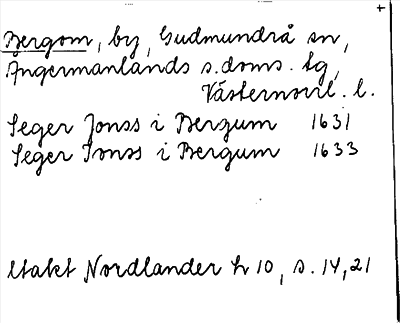 +
Bergom, by, Gudmundrå sn,
Ångermanlands s.doms. tg,
Västernorrl. l.
Seger Jonss i Bergum 1631
Seger Jonss i Bergum 1633
Utakt Nordlander h 10, s. 14, 21